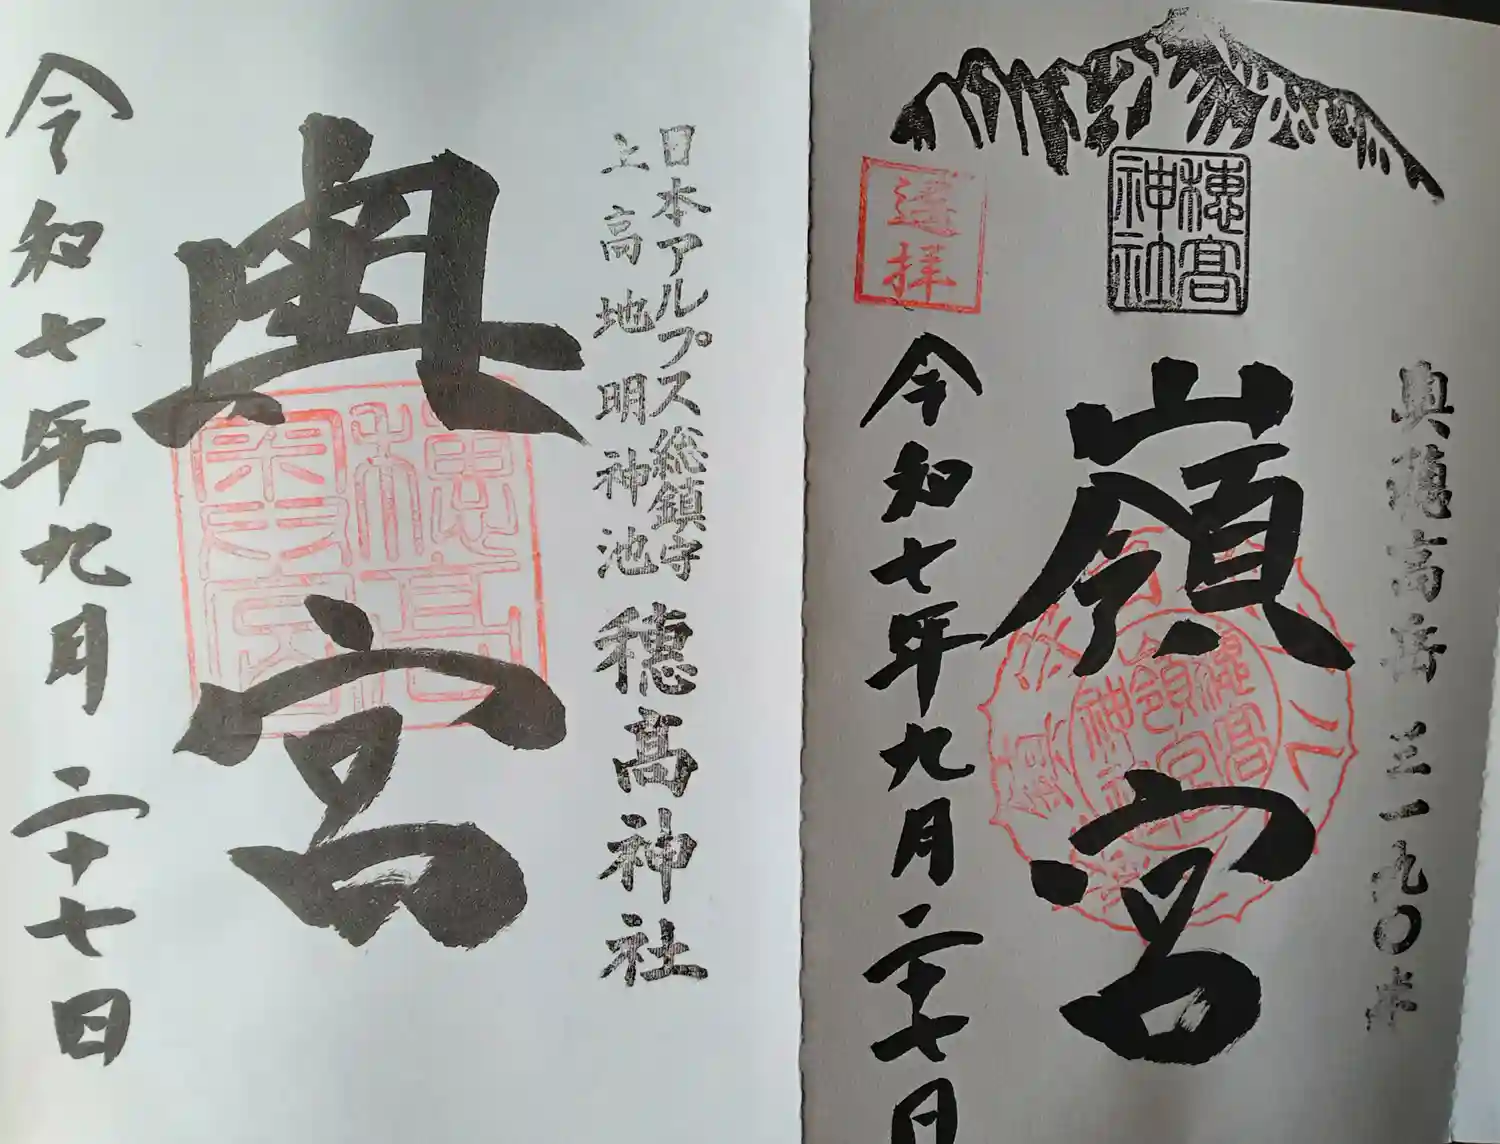 奥穂高岳 三一九〇米
穂高
神社
嶺宮
穂高
嶺宮
神社
遥拝
令和七年九月二十七日
日本アルプス総鎮守
上高地明神池
穂髙神社
奥宮
穂高
奥宮
令和七年九月二十七日